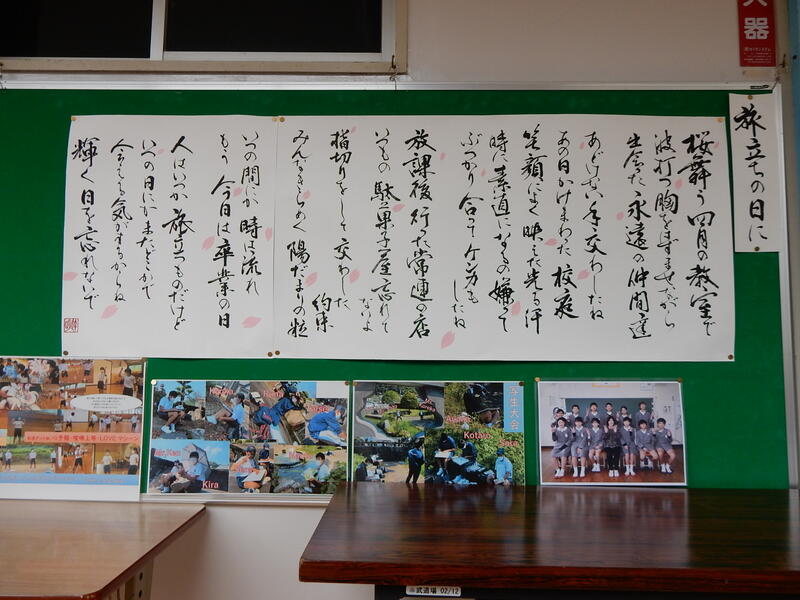 旅立ちの日に
桜舞う四月の教室で
波打つ胸をはずませながら
出会た永遠の仲間達
あどけない手交わしたね
あの日かけまわった校庭
笑顔によく映えた光る汗
時に素直になるの嫌って
ぶつかり合ってケンカも
したね
放課後行った常連の店
いつもの駄菓子屋忘れて
ないよ
指切りをして交わした
約束
みんなきらめく陽だまりの粒
いつの間にか時は流れ
もう今日は卒業の日
人はいつか旅立つものだけど
いつの日にかまたどこかで
会える気がするからね
輝く日を忘れないで
器
学生大会
Kotaro
Kira
武道場 02/12